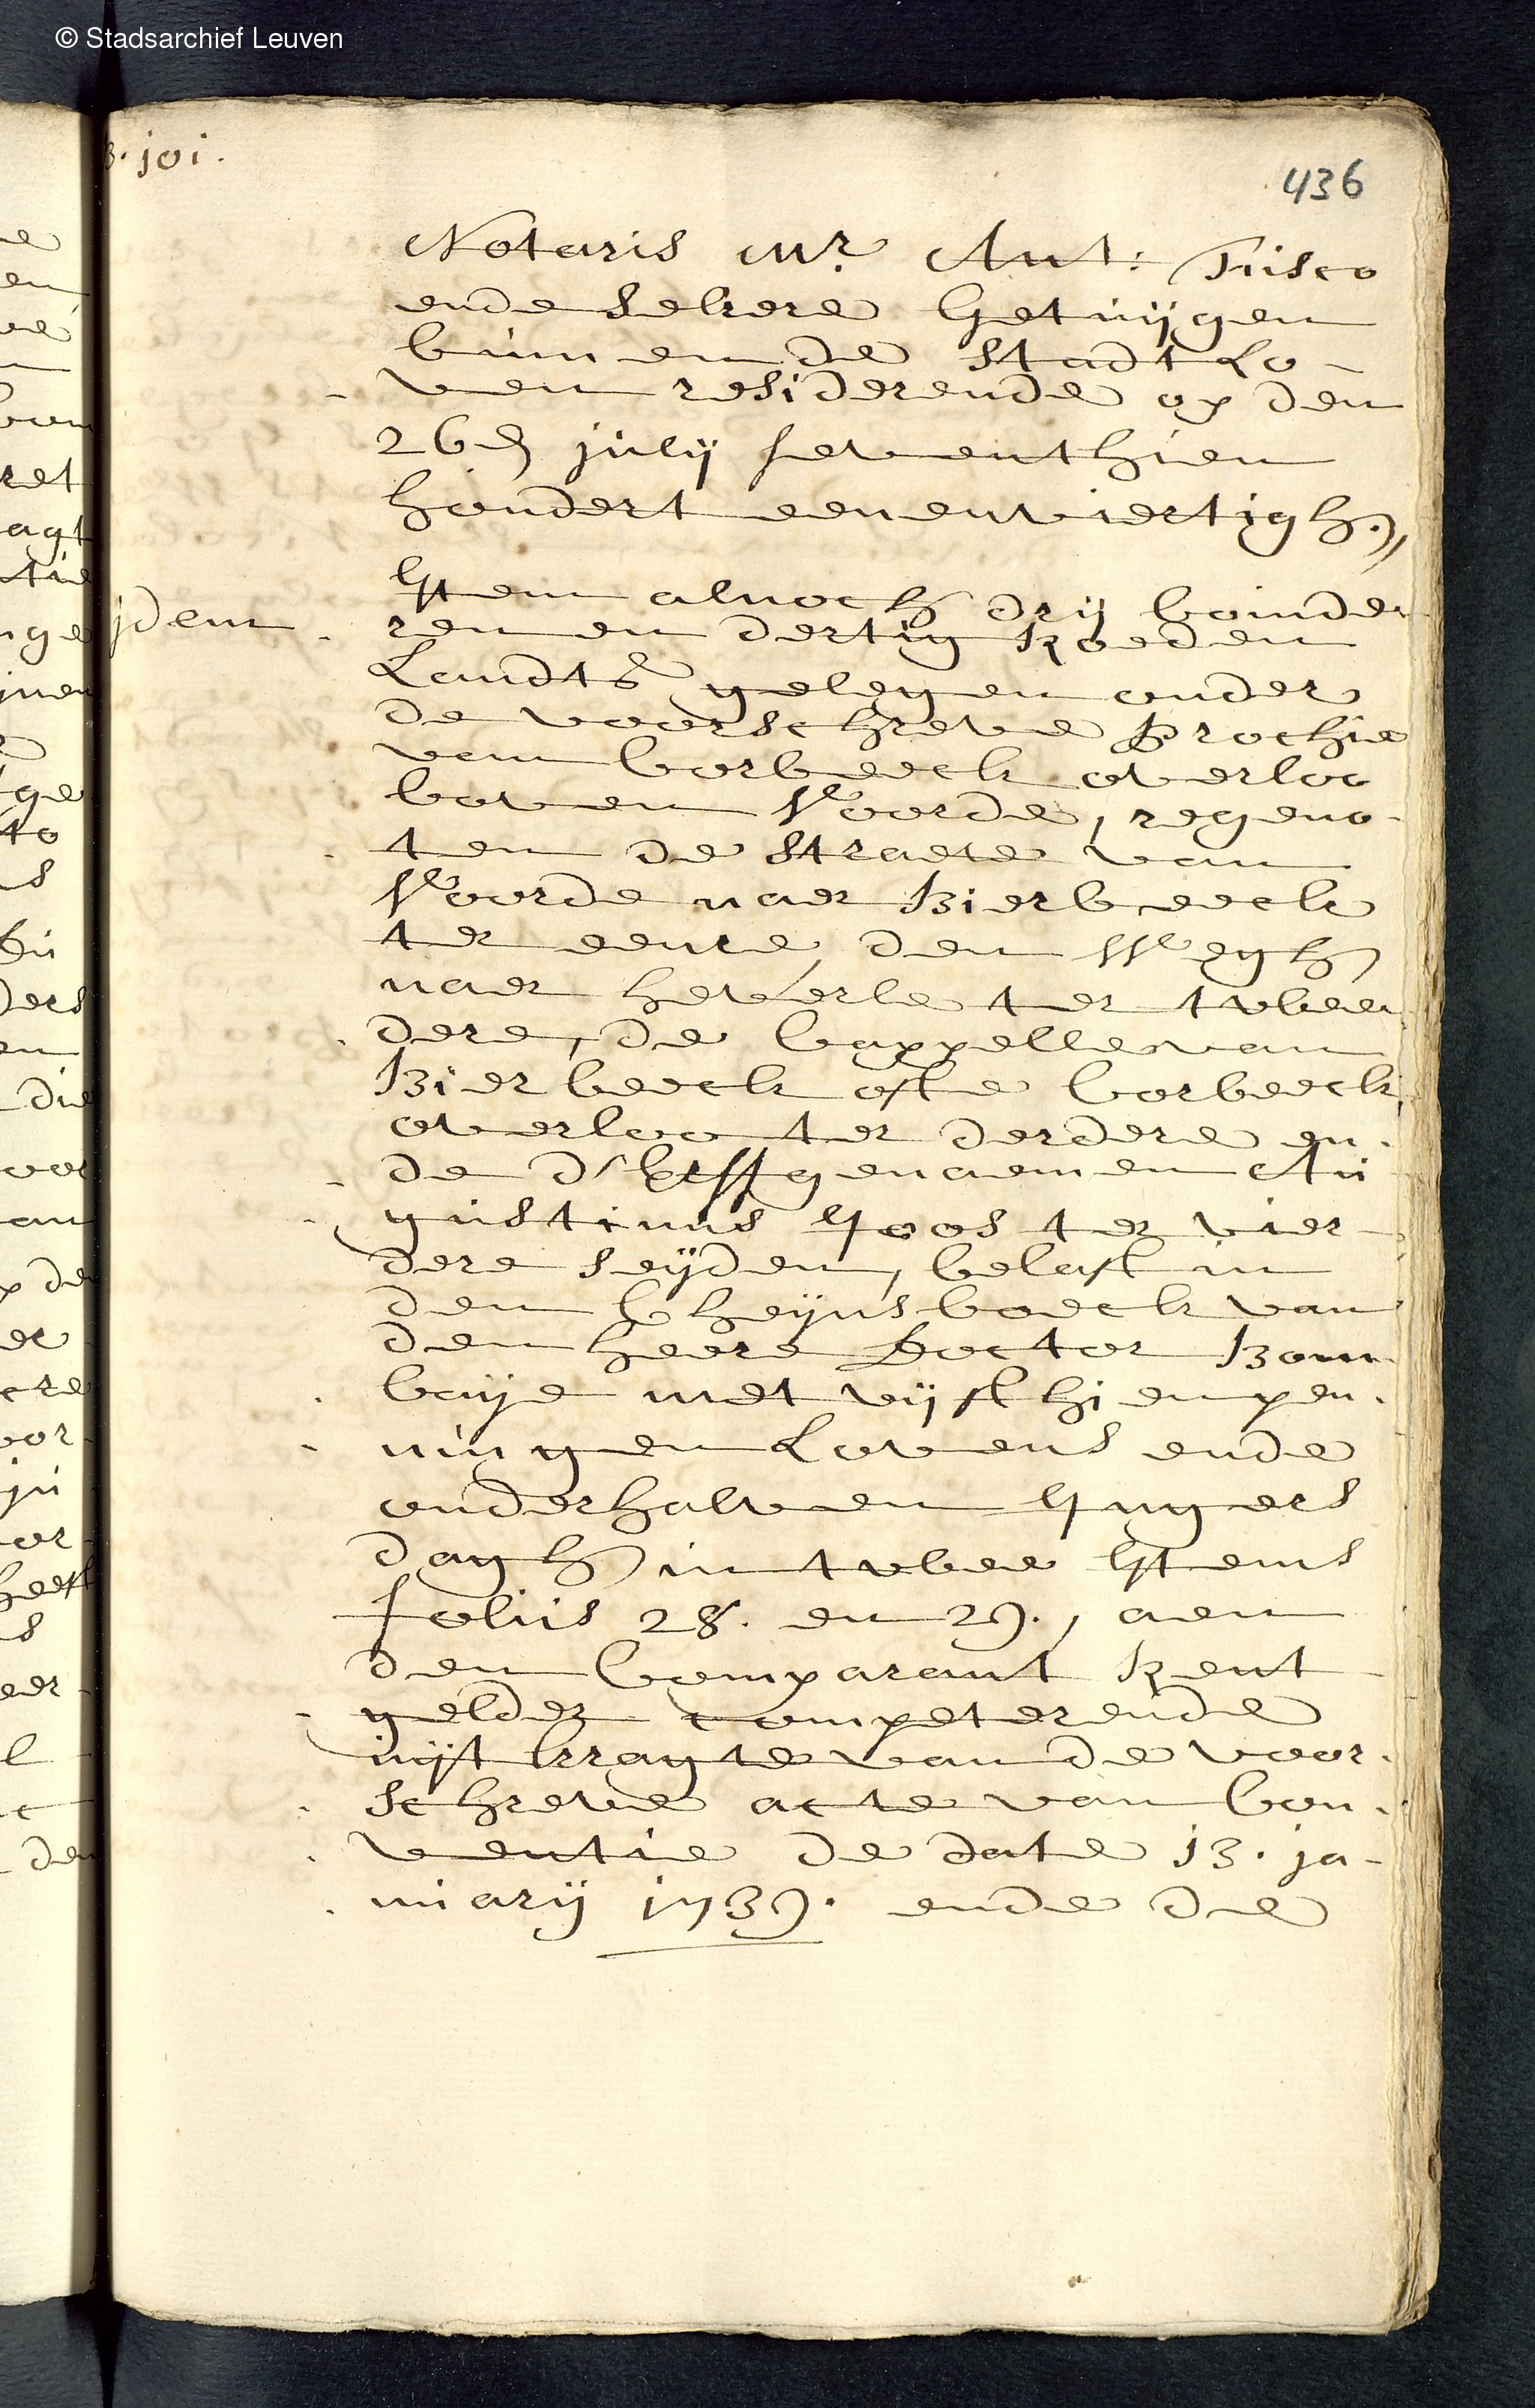 © Stadsarchief Leuven
3. joi.
436
Notaris Mr. Ant: Tisco
ende sekere getuijgen
binnen de stadt Lo-
ven residerende op den
26en julij seventhien
hondert eenenviertigh.,
jdem
Item alnoch drij boinde-
ren en dertig Roeden
Landts gelegen onder
de voorschreve Prochie
van Corbeeck overloo
boven Voorde, regeno-
ten de straete van
Voorde naer Bierbeeck
ter eenre, den Wegh
naer heverle ter twee-
dere, de Cappelle van
Bierbeeck ofte Corbeeck
overloo ter derdere en-
de d' genaemen Au
gustinus Goos ter vier-
dere seijden, belast in
den Cheijnsboeck van
den heere Doctor Bom-
baije met vijfthien pen-
ningen Lovens ende
onderhalven
dagh in twee Items
foliis 28. en 29., aen
den Comparant Rent
gelder competerende
uijt krragte van de voor-
schreve acte van Con-
ventie de date 13. ja-
nuarij 1739. ende de